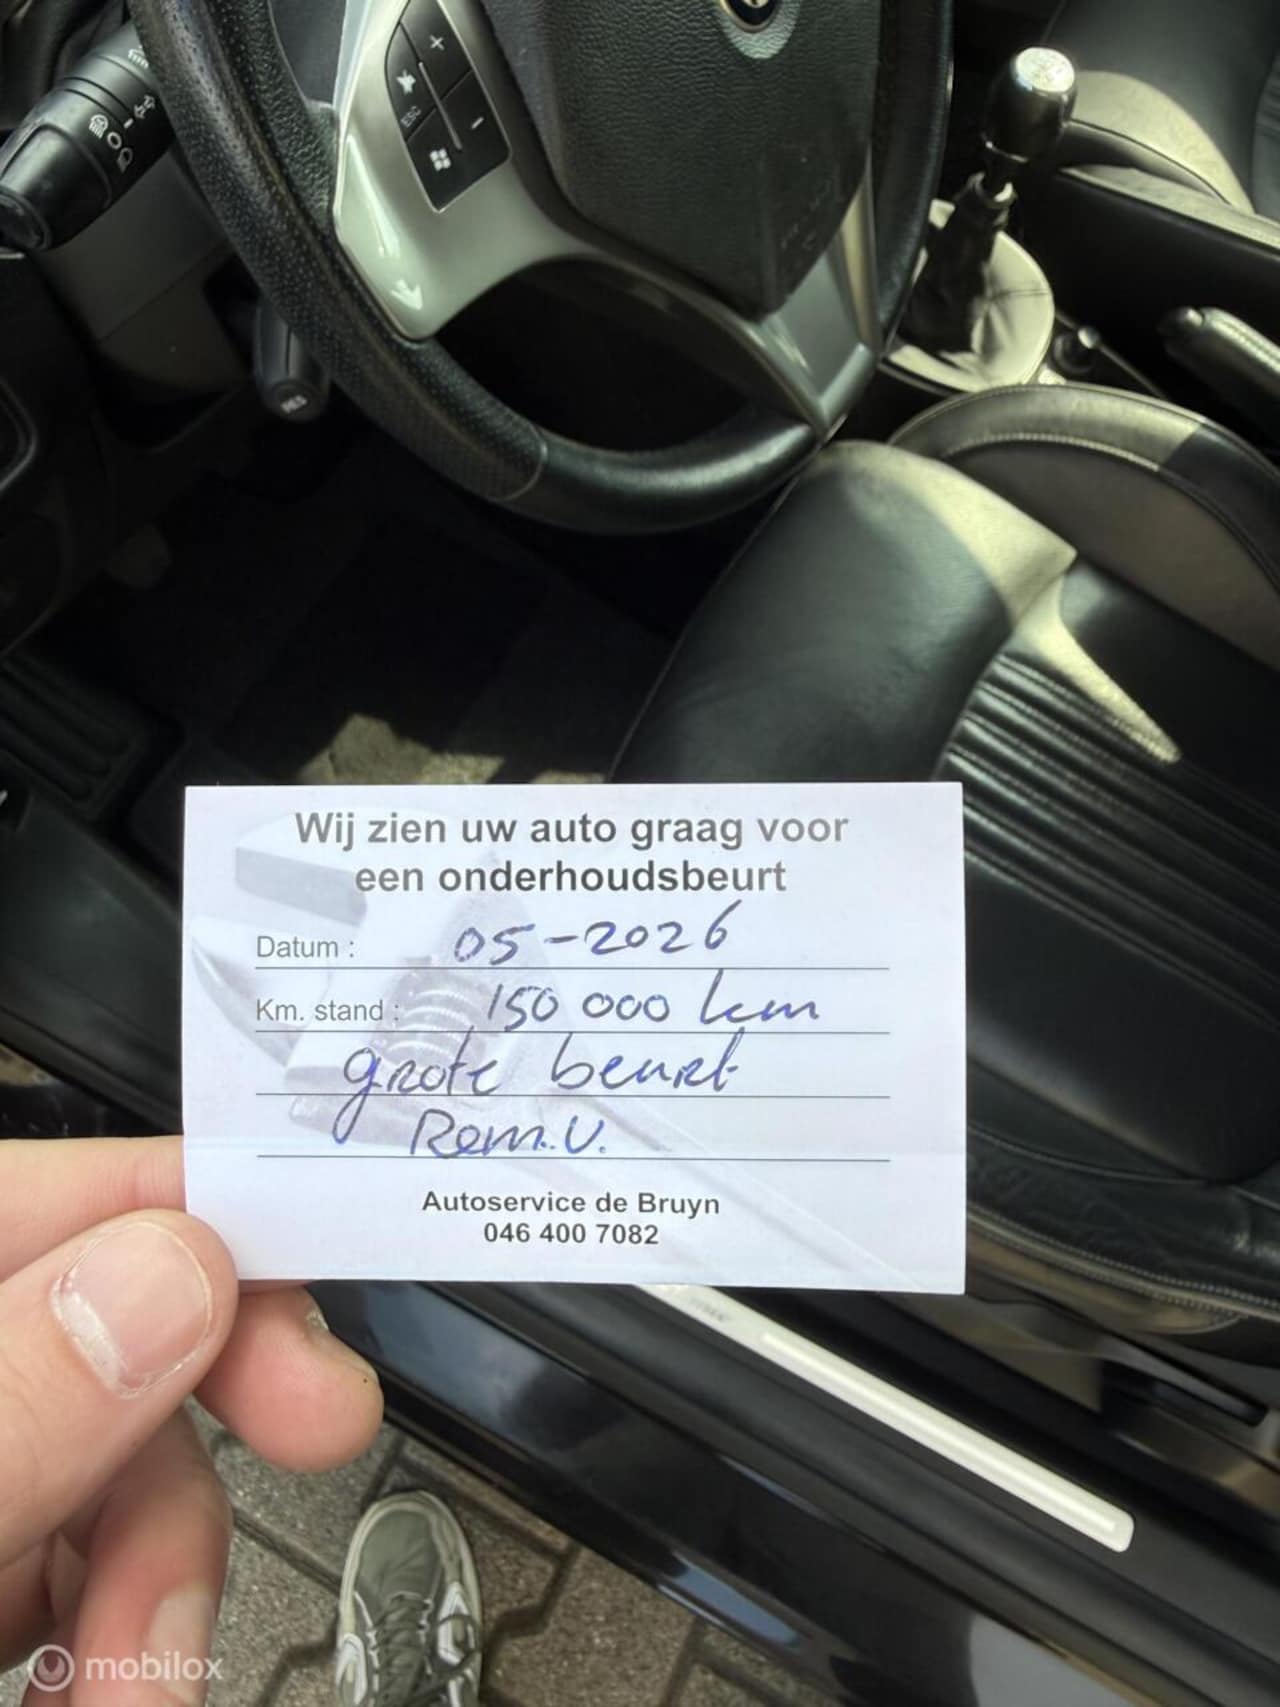 ESC
RES
Wij zien uw auto graag voor
een onderhoudsbeurt
Datum : 05-2026
Km. stand : 150 000 km
grote beurt
Rem.V.
Autoservice de Bruyn
046 400 7082
mobilox